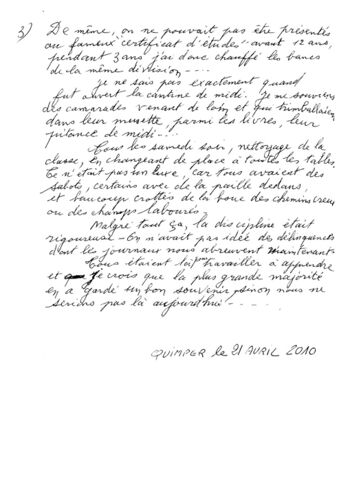 3) De même, on ne pouvait pas être présentés
au fameux "certificat d'études" avant 12 ans,
pendant 3 ans j'ai donc chauffé les bancs
de la même division - - - .
Je ne sais pas exactement quand
fut ouvert la cantine de midi. Je me souviens
des camarades venant de loin et qui trimballaient
dans leur musette, parmi les livres, leur
pitance de midi - - - .
Tous les samedo soir, nettoyage de la
classe, en changeant de place à toutes les tables.
Ce n'était pas un luxe, car tous avaient des
sabots, certains avec de la paille dedans,
et beaucoup crottés de la boue des chemins creux
ou des champs labourés.
Malgré tout ça, la discipline était
rigoureuse - On n'avait pas idée des délinquants
dont les journaux nous abreuvent maintenant.
Tous étaient là pour travailler à apprendre
et je crois que la plus grande majorité
en a gardé un bon souvenir sinon nous ne
serions pas là aujourd'hui - - - - .
QUIMPER le 21 AVRIL 2010